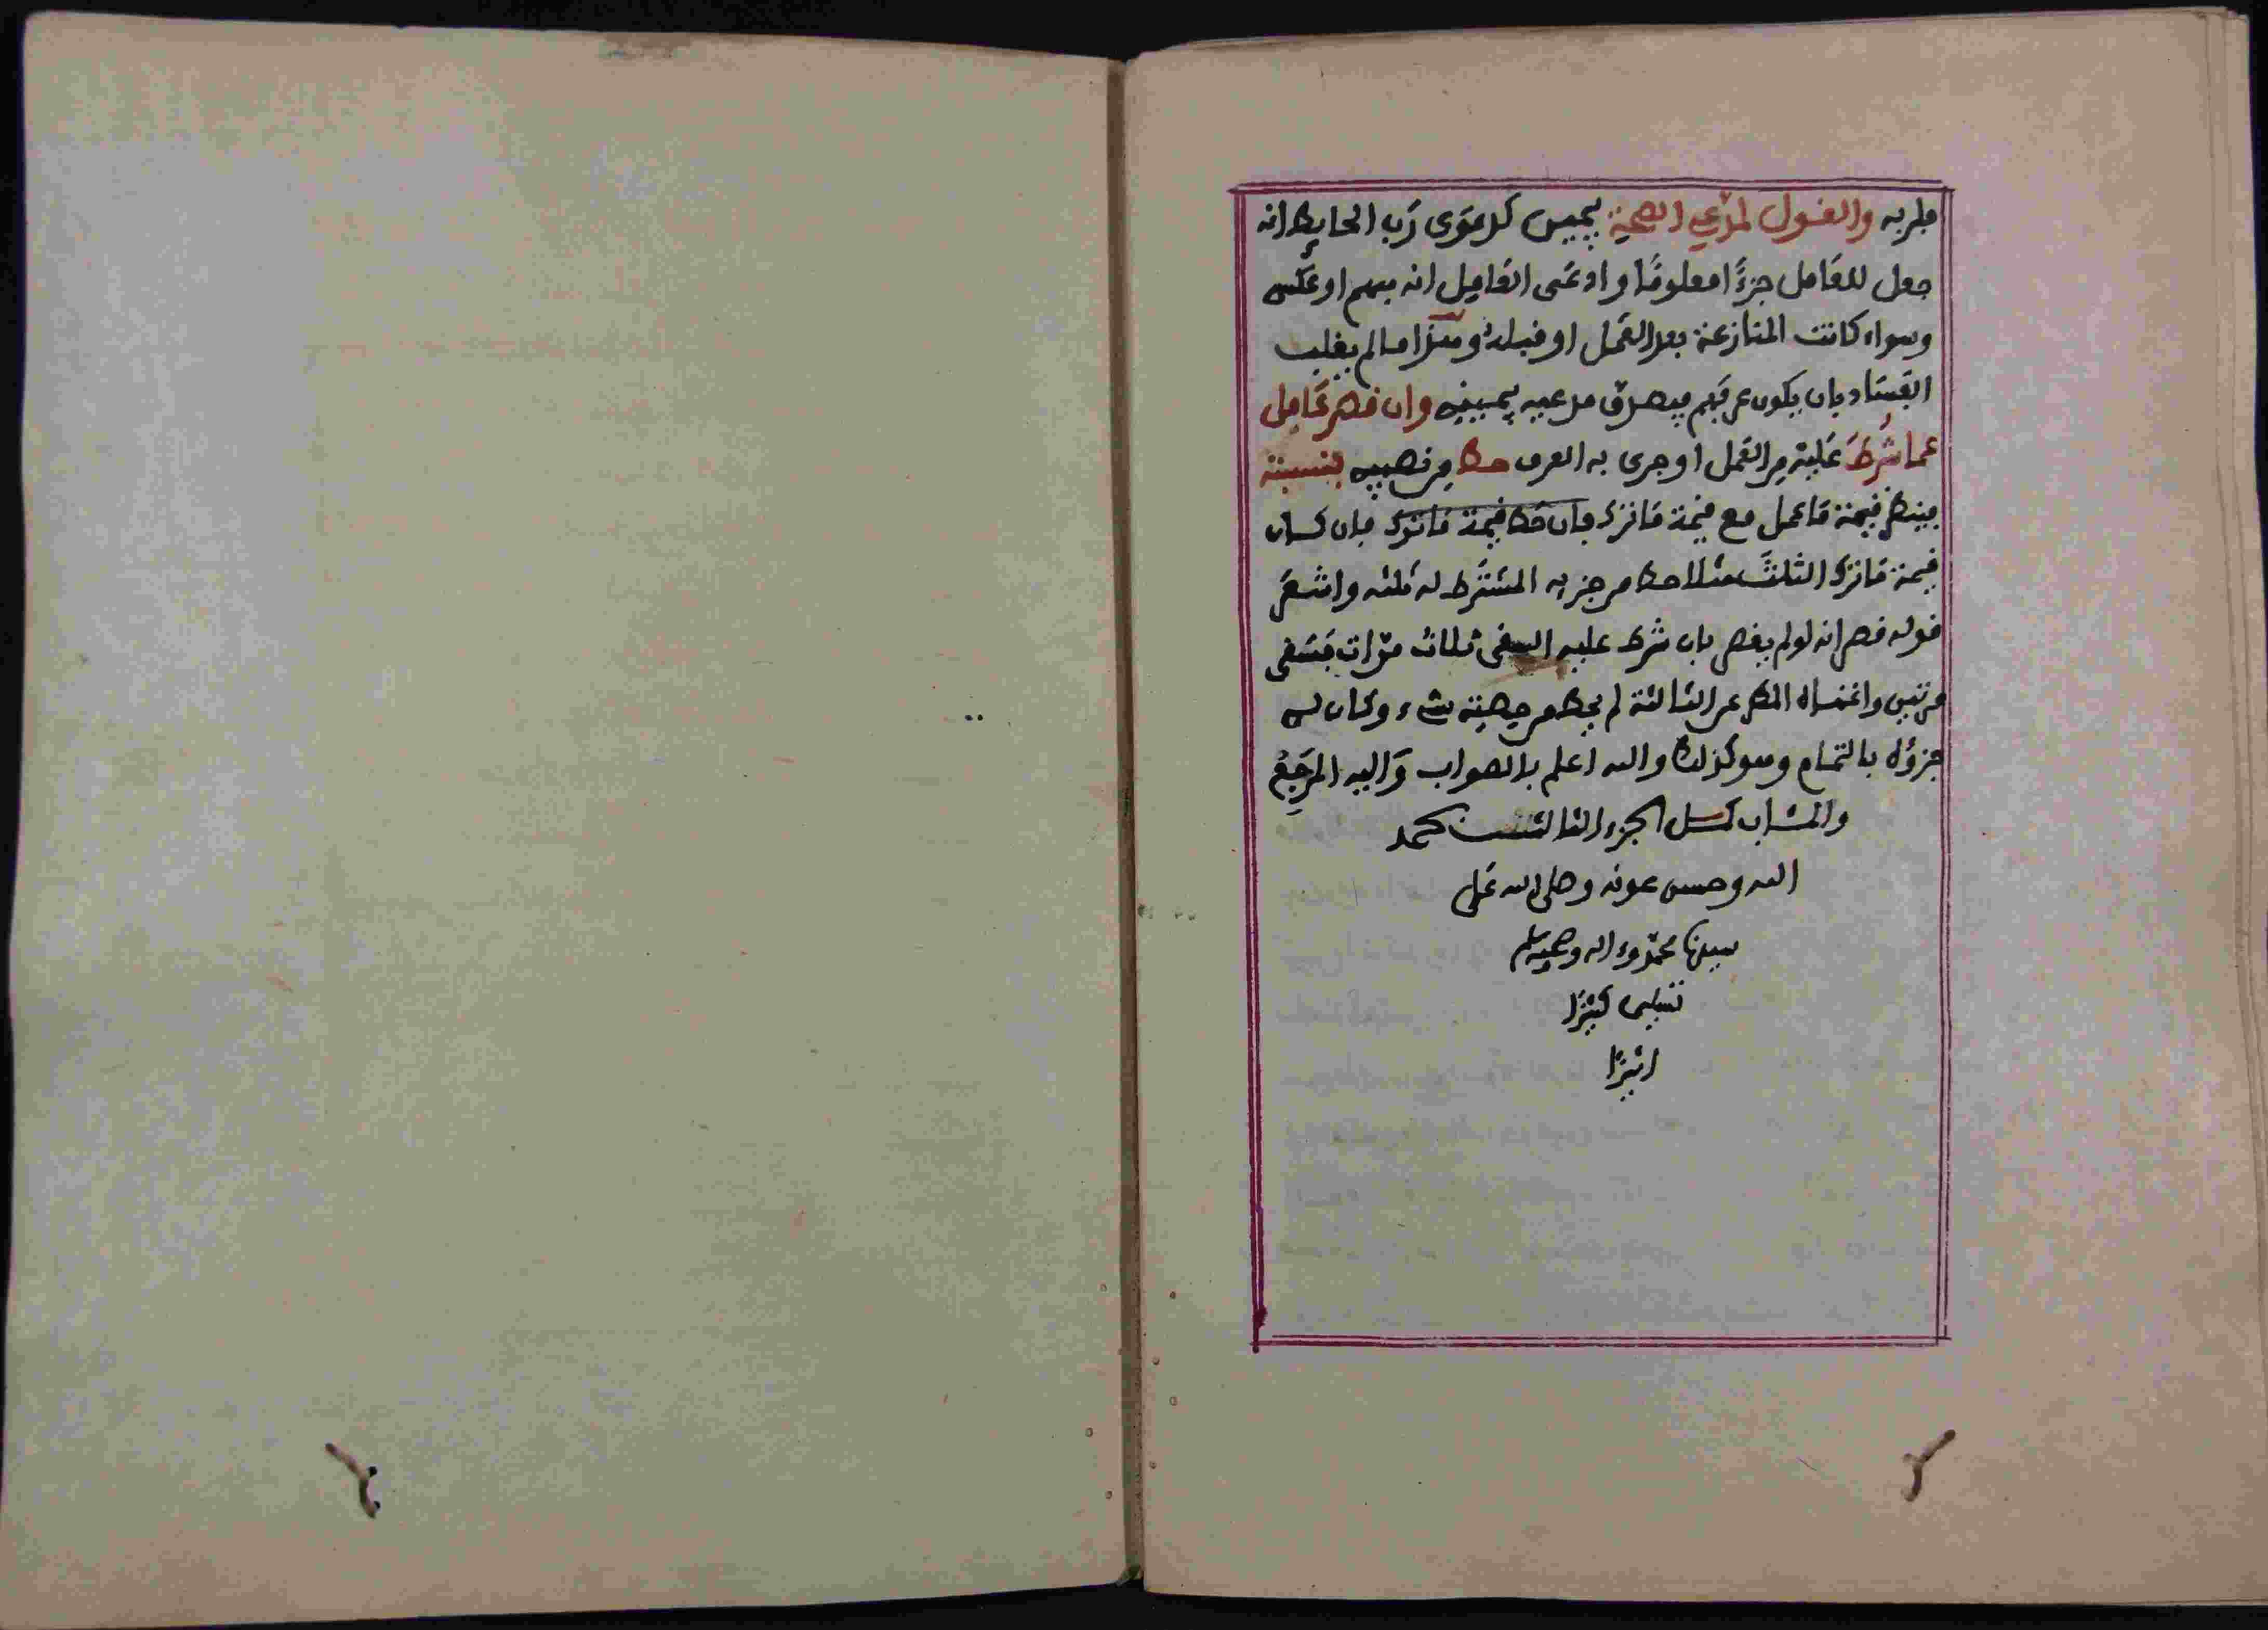 قلر به والقول لمدعي الصحة بيمين كدعوى رب الحائط انه
جعل للعامل جزءًا معلومًا وادعى العامل انه مبهم او عكس
وسواء كانت المنازعة بعد العمل او قبله وهذا ما لم يغلب
الفساد بان يكون عرفهم فيصدق مدعيه بيمينه وان قصر عامل
عما شرط عليه من العمل او جرى به العرف حط من نصيبه بنسبته
فينظر قيمة ما عمل مع قيمة ما ترك فان كان
قيمة ما ترك الثلث مثلا حط من جزءه المشترط له ثلثه واشعر
قوله قصر انه لو لم يقصر بان شرط عليه السقي ثلاث مرات فسقى
مرتين واغناه المطر عن الثالثة لم يحط من حصته شيء وكان له
جزؤه بالتمام وهو كذلك والله اعلم بالصواب واليه المرجع
والمئاب كمل الجزء الثالث بحمد
الله وحسن عونه وصلى الله على
سيدنا محمد وءاله وصحبه وسلم
تسليما كثيرا
اثيرا